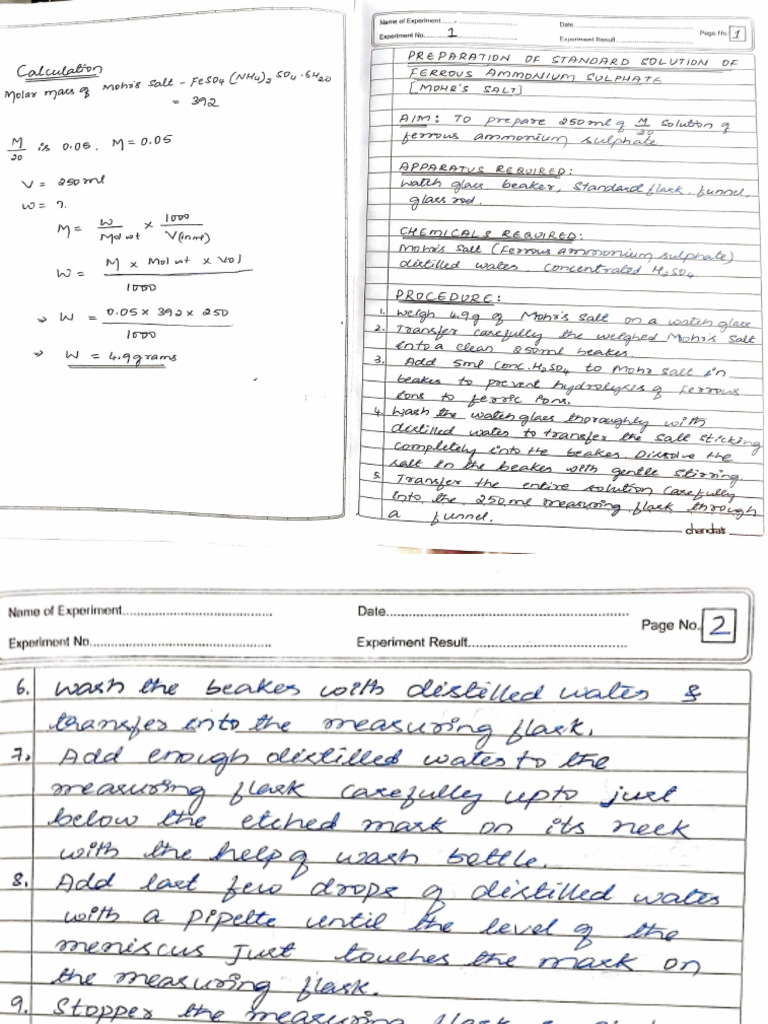 Calculation
Molar mass of Mohr's Salt - FeSO4 (NH4)2 SO4 . 6H2O
= 392
M/20 is 0.05. M = 0.05
V = 250ml
W = ?
M = W/Mol wt × 1000/V(in ml)
W = M × Mol wt × Vol / 1000
W = 0.05 × 392 × 250 / 1000
W = 4.9 grams
Name of Experiment
Date
Experiment No. 1
Experiment Result
Page No. 1
PREPARATION OF STANDARD SOLUTION OF
FERROUS AMMONIUM SULPHATE
[MOHR'S SALT]
AIM: To prepare 250ml of M/20 solution of
ferrous ammonium sulphate
APPARATUS REQUIRED:
watch glass beaker, Standard flask, funnel,
glass rod.
CHEMICALS REQUIRED:
Mohr's Salt (Ferrous ammonium sulphate)
distilled water. Concentrated H2SO4
PROCEDURE:
1. Weigh 4.9g of Mohr's Salt on a watch glass
2. Transfer carefully the weighed Mohr's Salt
into a clean 250ml beaker.
3. Add 5ml conc. H2SO4 to Mohr salt in
beaker to prevent hydrolysis of ferrous
ions to ferric ions.
4. Wash the watch glass thoroughly with
distilled water to transfer the salt sticking
completely into the beaker. Dissolve the
salt in the beaker with gentle stirring.
5. Transfer the entire solution carefully
into the 250ml measuring flask through
a funnel.
Name of Experiment
Date
Experiment No.
Experiment Result
Page No. 2
6. Wash the beaker with distilled water &
transfer into the measuring flask.
7. Add enough distilled water to the
measuring flask carefully upto just
below the etched mark on its neck
with the help of wash bottle.
8. Add last few drops of distilled water
with a pipette until the level of the
meniscus just touches the mark on
the measuring flask.
9. Stopper the measuring flask